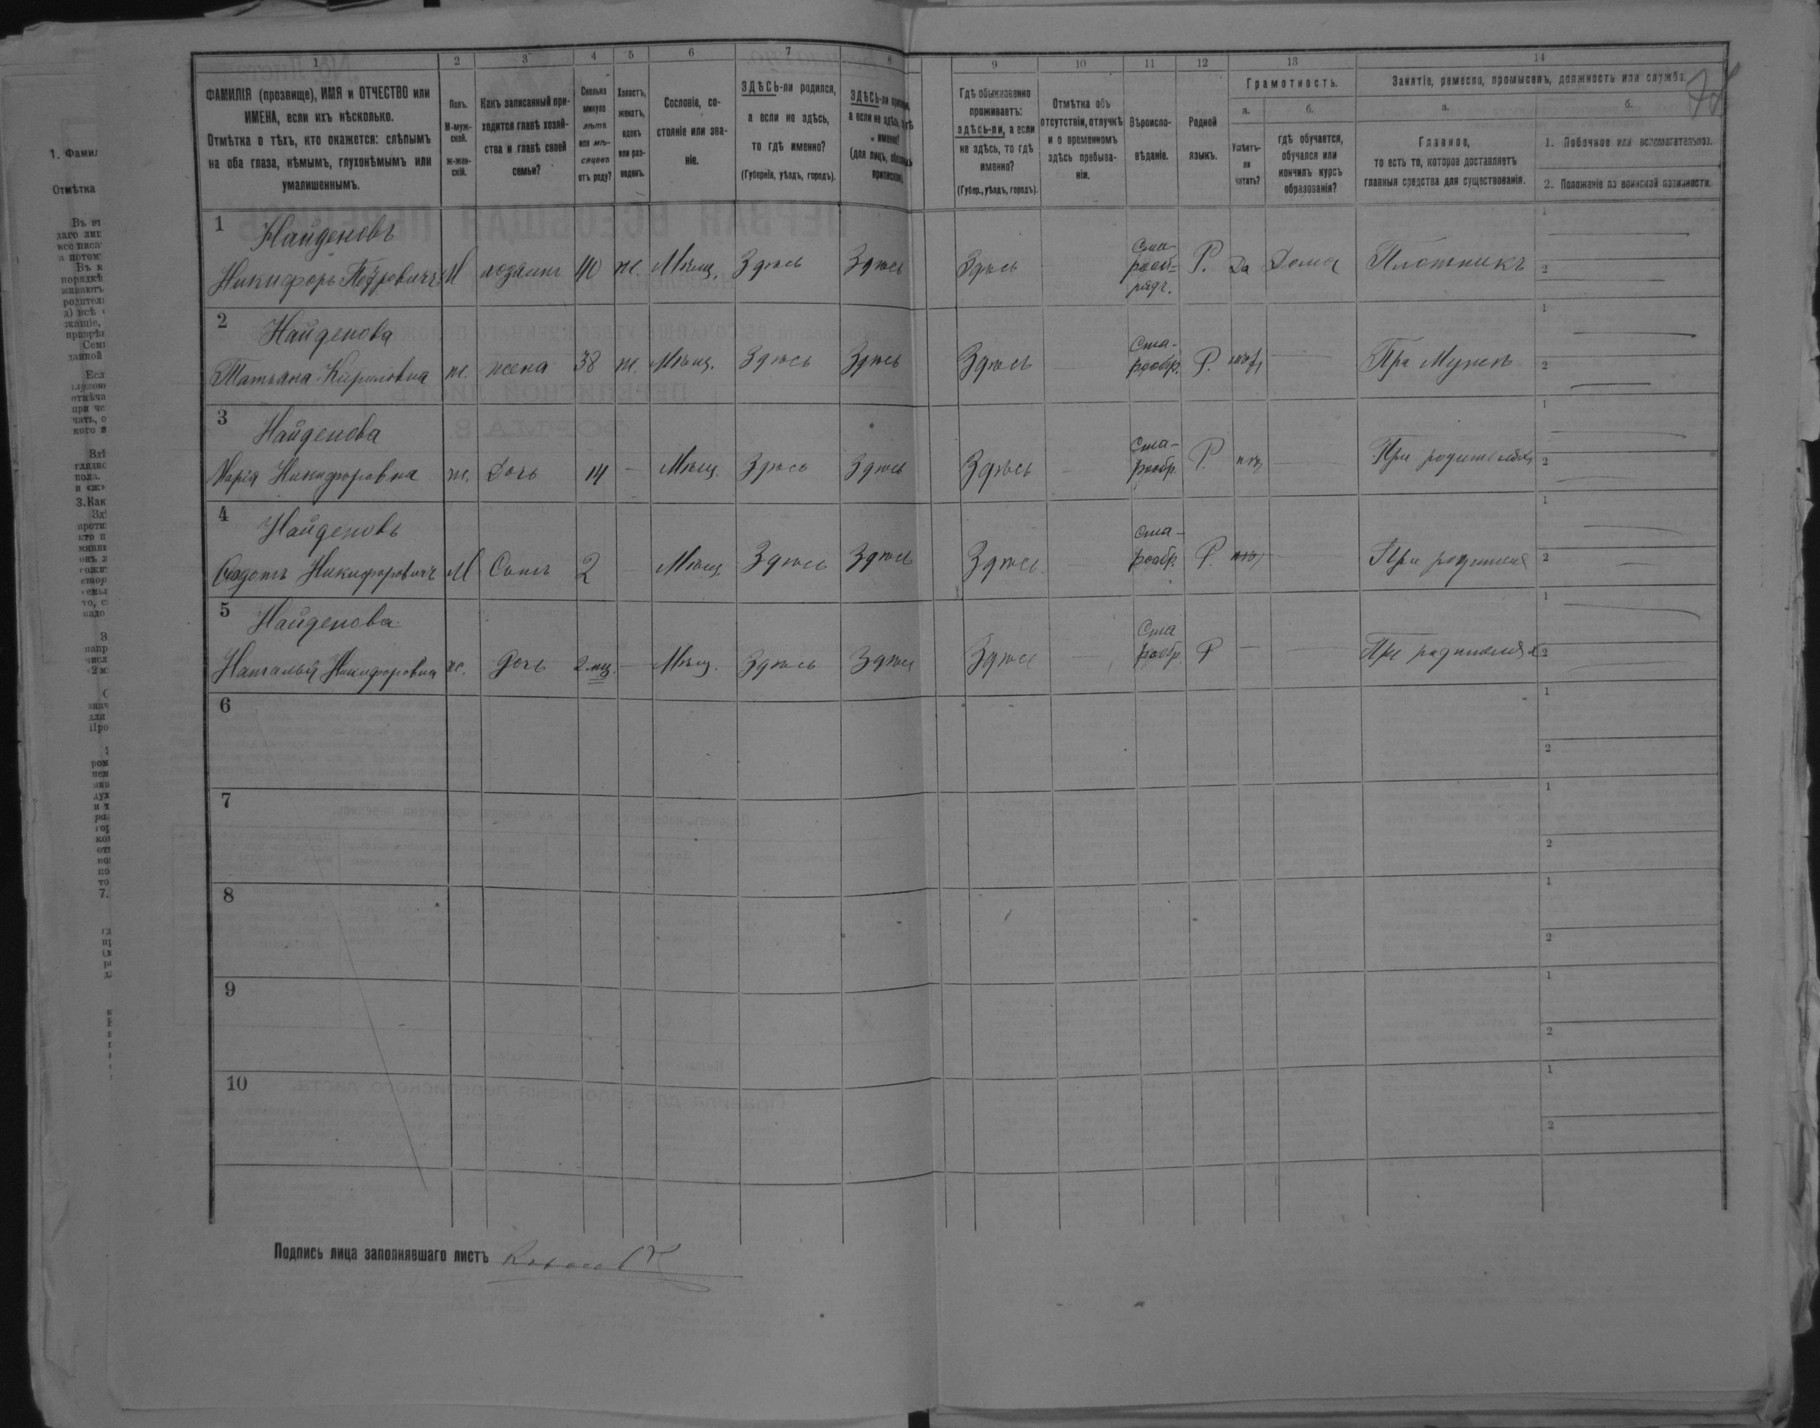 1 2 3 4 5 6 7 8 9 10 11 12 13 14
ФАМИЛІЯ (прозвище), ИМЯ и ОТЧЕСТВО или
ИМЕНА, если ихъ нѣсколько.
Отмѣтка о тѣхъ, кто окажется: слѣпымъ
на оба глаза, нѣмымъ, глухонѣмымъ или
умалишеннымъ.
Полъ.
М-муж-
ской.
ж-жен-
скій.
Какъ записанный при-
ходится главѣ хозяй-
ства и главѣ своей
семьи?
Сколько
минуло
лѣтъ
или мѣ-
сяцевъ
отъ роду?
Холостъ,
женатъ,
вдовъ
или раз-
веденъ.
Сословіе, со-
стояніе или зва-
ніе.
ЗДѢСЬ-ли родился,
а если не здѣсь,
то гдѣ именно?
(Губернія, уѣздъ, городъ).
ЗДѢСЬ-ли
а если не здѣсь,
именно?
(для лицъ,
Гдѣ обыкновенно
проживаетъ:
здѣсь-ли, а если
не здѣсь, то гдѣ
именно?
(Губер., уѣздъ, городъ).
Отмѣтка объ
отсутствіи, отлучкѣ
и о временномъ
здѣсь пребыва-
ніи.
Вѣроиспо-
вѣданіе.
Родной
языкъ.
Грамотность.
а. б.
Умѣетъ-
ли
читать?
гдѣ обучается,
обучался или
кончилъ курсъ
образованія?
Занятіе, ремесло, промыселъ, должность или служба.
а. б.
Главное,
то есть то, которое доставляетъ
главныя средства для существованія.
1. Побочное или вспомогательное.
2. Положеніе по воинской повинности.
1 Найденовъ
Никифоръ Петровичъ М хозяинъ 40 ж. Мѣщ. Здѣсь Здѣсь Здѣсь Ста-
рооб=
рядч. Р. Да Дома Плотникъ 1 2
2 Найденова
Татьяна Кириловна ж. жена 38 ж. Мѣщ. Здѣсь Здѣсь Здѣсь Ста-
рообр. Р. нѣтъ При Мужѣ 1 2
3 Найденова
Марія Никифоровна ж. Дочь 14 Мѣщ. Здѣсь Здѣсь Здѣсь Ста-
рообр. Р. нѣтъ При родителяхъ 1 2
4 Найденовъ
Федотъ Никифоровичъ М Сынъ 2 Мѣщ Здѣсь Здѣсь Здѣсь Ста-
рообр. Р. нѣтъ При родителяхъ 1 2
5 Найденова
Наталья Никифоровна ж. Дочь 2 мц. Мѣщ. Здѣсь Здѣсь Здѣсь Ста
рообр Р При родителяхъ 1 2
6 1 2
7 1 2
8 1 2
9 1 2
10 1 2
Подпись лица заполнявшаго листъ